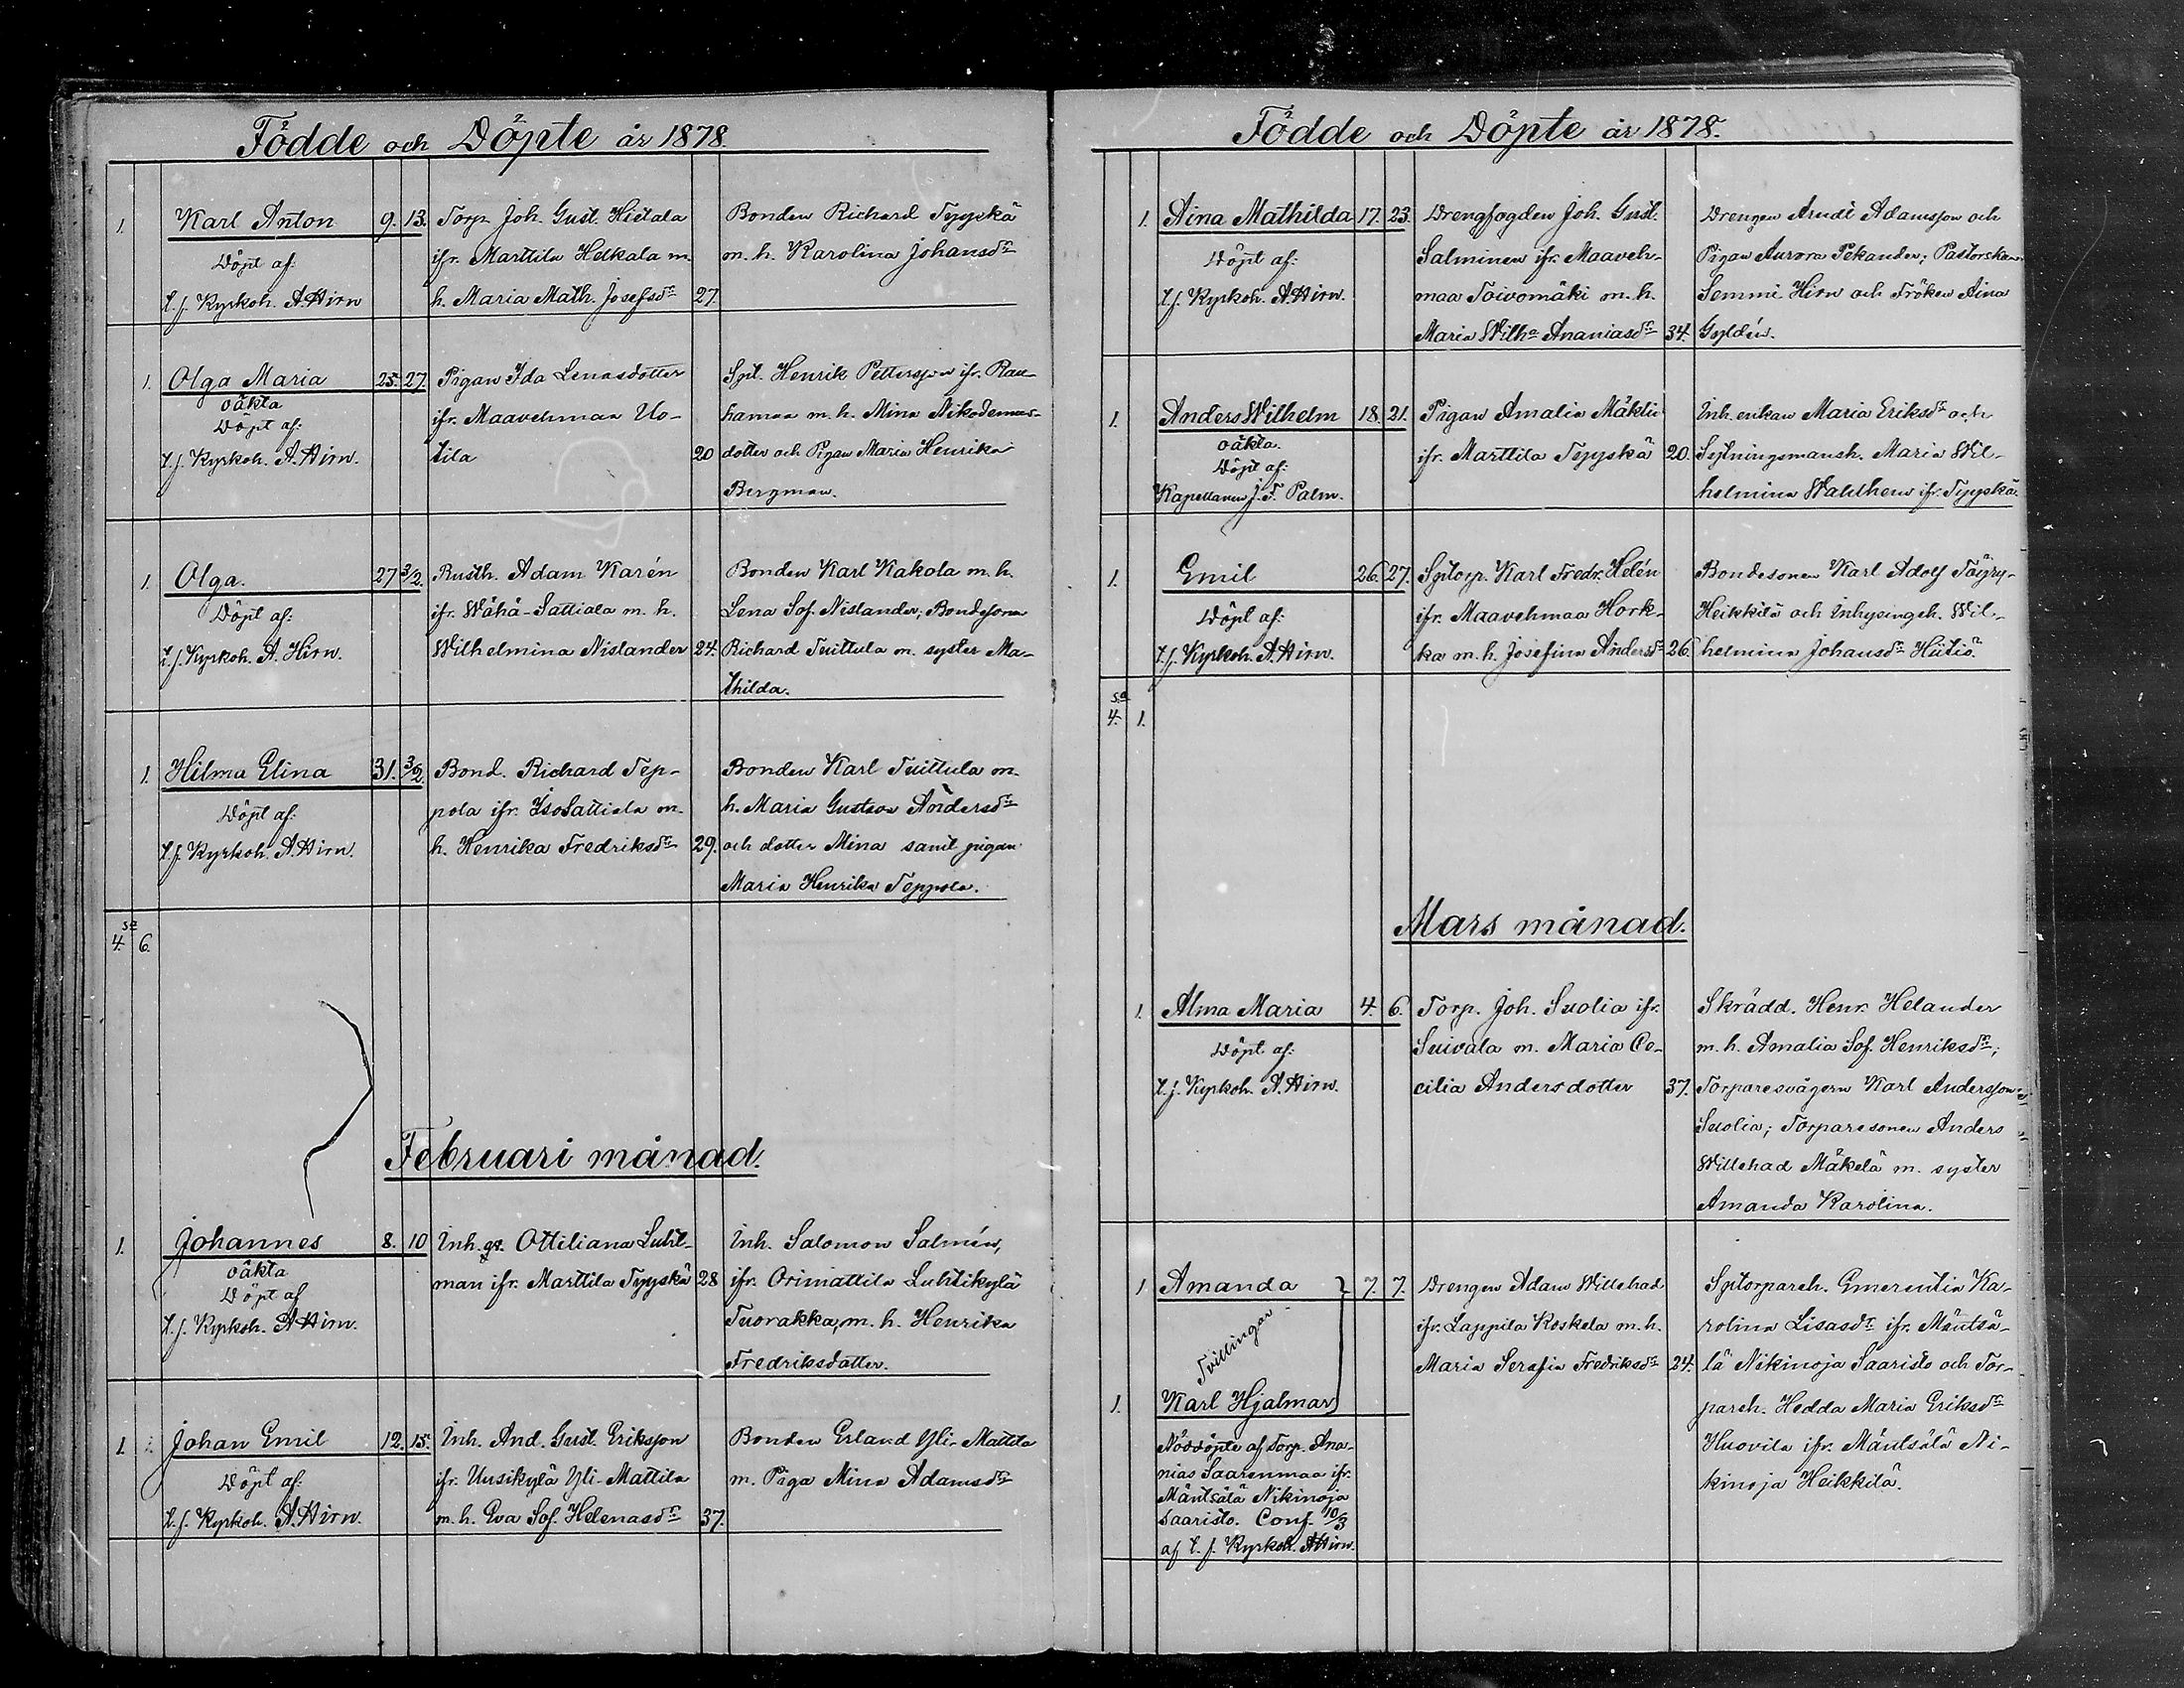 Födde och Döpte år 1878.
1. Karl Anton 9. 13. Torp. Joh. Gust. Hietala Bonden Richard Tyyskä
Döpt af: ifr. Marttila Helkala m. m. h. Karolina Johansdr
t. f. Kyrkoh. A. Hirn h. Maria Math. Josefsdr 27.
1. Olga Maria 25. 27. Pigan Ida Lenasdotter Sytl. Henrik Pettersson ifr. Rau-
oäkta ifr. Maavehmaa Uo- hamaa m. h. Mina Nikodemus-
Döpt af:
t. f. Kyrkoh. A. Hirn. tila 20 dotter och Pigan Maria Henrika
Bergman.
1. Olga. 27 3/2. Rusth. Adam Karén Bonden Karl Kakola m. h.
Döpt af: ifr. Wähä-Sattiala m. h. Lena Sof. Nislander; Bondesonen
t. f. Kyrkoh. A. Hirn. Wilhelmina Nislander 24. Richard Tuittula m. syster Ma-
thilda.
1. Hilma Elina 31. 3/2. Bond. Richard Tep- Bonden Karl Tuittula m.
Döpt af: pola ifr. IsoSattiala m. h. Maria Gustava Andersdr
t. f. Kyrkoh. A. Hirn. h. Henrika Fredriksdr 29. och dotter Mina samt pigan
Maria Henrika Teppola.
sa
4. 6.
Februari månad.
1. Johannes 8. 10 Inh. qv. Ottiliana Luht- Inh. Salomon Salmén,
oäkta man ifr. Marttila Tyyskä 28 ifr. Orimattila Luhtikylä
Döpt af
t. f. Kyrkoh. A. Hirn. Tuorakka, m. h. Henrika
Fredriksdotter.
1. Johan Emil 12. 15. Inh. And. Gust. Eriksson Bonden Erland Yli-Mattila
Döpt af: ifr. Uusikylä Yli-Mattila m. Piga Mina Adamsdr
t. f. Kyrkoh. A. Hirn. m. h. Eva Sof. Helenasdr 37.
Födde och Döpte år 1878.
1. Aina Mathilda 17. 23. Drengfogden Joh. Gust. Drengen Arndt Adamsson och
Döpt af: Salminen ifr. Maaveh- Pigan Aurora Pekander; Pastorskan
t. f. Kyrkoh. A. Hirn. maa Toivomäki m. h. Semmi Hirn och Fröken Aina
Maria Wilha Ananiasdr 34. Gyldén.
1. Anders Wilhelm 18. 21. Pigan Amalia Mäklin Inh. enkan Maria Eriksdr och
oäkta. ifr. Marttila Tyyskä 20. Sytningsmansh. Maria Wil-
Döpt af:
Kapellanen J. F. Palm. helmina Wahlhen ifr. Tyyskä.
1. Emil 26. 27. Sytorp. Karl Fredr. Helén Bondesonen Karl Adolf Täyry-
Döpt af: ifr. Maavehmaa Hork- Heikkilä och Inhysingeh. Wil-
t. f. Kyrkoh. A. Hirn. ka m. h. Josefina Andersdr 26. helmina Johansdr Hiitiö.
sa
4. 1.
Mars månad.
1. Alma Maria 4. 6. Torp. Joh. Suolia ifr. Skrädd. Henr. Helander
Döpt af: Suivala m. Maria Ce- m. h. Amalia Sof. Henriksdr;
t. f. Kyrkoh. A. Hirn. cilia Andersdotter 37. Torparesvågern Karl Andersson
Suolia; Torparesonen Anders
Willehad Mäkelä m. syster
Amanda Karolina.
1 Amanda 7. 7. Drengen Adam Willehad Sytorpareh. Emerentia Ka-
Tvillingar ifr. Lappila Koskela m. h. rolina Lisasdr ifr. Mäntsä-
Maria Serafia Fredriksdr 24. lä Nikinoja Saaristo och Tor-
1. Karl Hjalmar pareh. Hedda Maria Eriksdr
Nöddöpte af Torp. Ana- Huovila ifr. Mäntsälä Ni-
nias Saarenmaa ifr. kinoja Heikkilä.
Mäntsälä Nikinoja
Saaristo. Conf. 10/3
af t. f. Kyrkoh. A. Hirn.